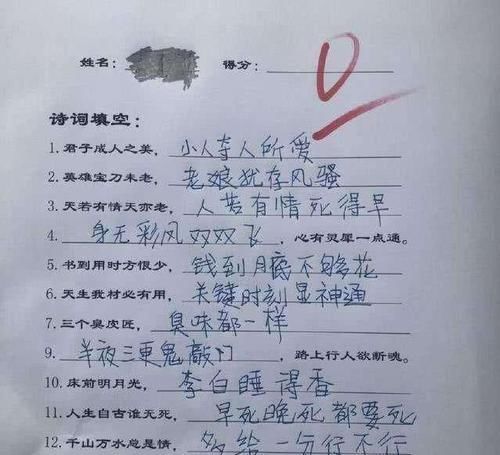 姓名： 得分： 0
诗词填空：
1. 君子成人之美，小人夺人所爱
2. 英雄宝刀未老，老娘犹存风骚
3. 天若有情天亦老，人若有情死得早
4. 身无彩风双双飞，心有灵犀一点通。
5. 书到用时方恨少，钱到月底不够花
6. 天生我材必有用，关键时刻显神通
7. 三个臭皮匠，臭味都一样
9. 半夜三更鬼敲门，路上行人欲断魂。
10. 床前明月光，李白睡得香
11. 人生自古谁无死，早死晚死都要死
12. 千山万水总是情，多给一分行不行